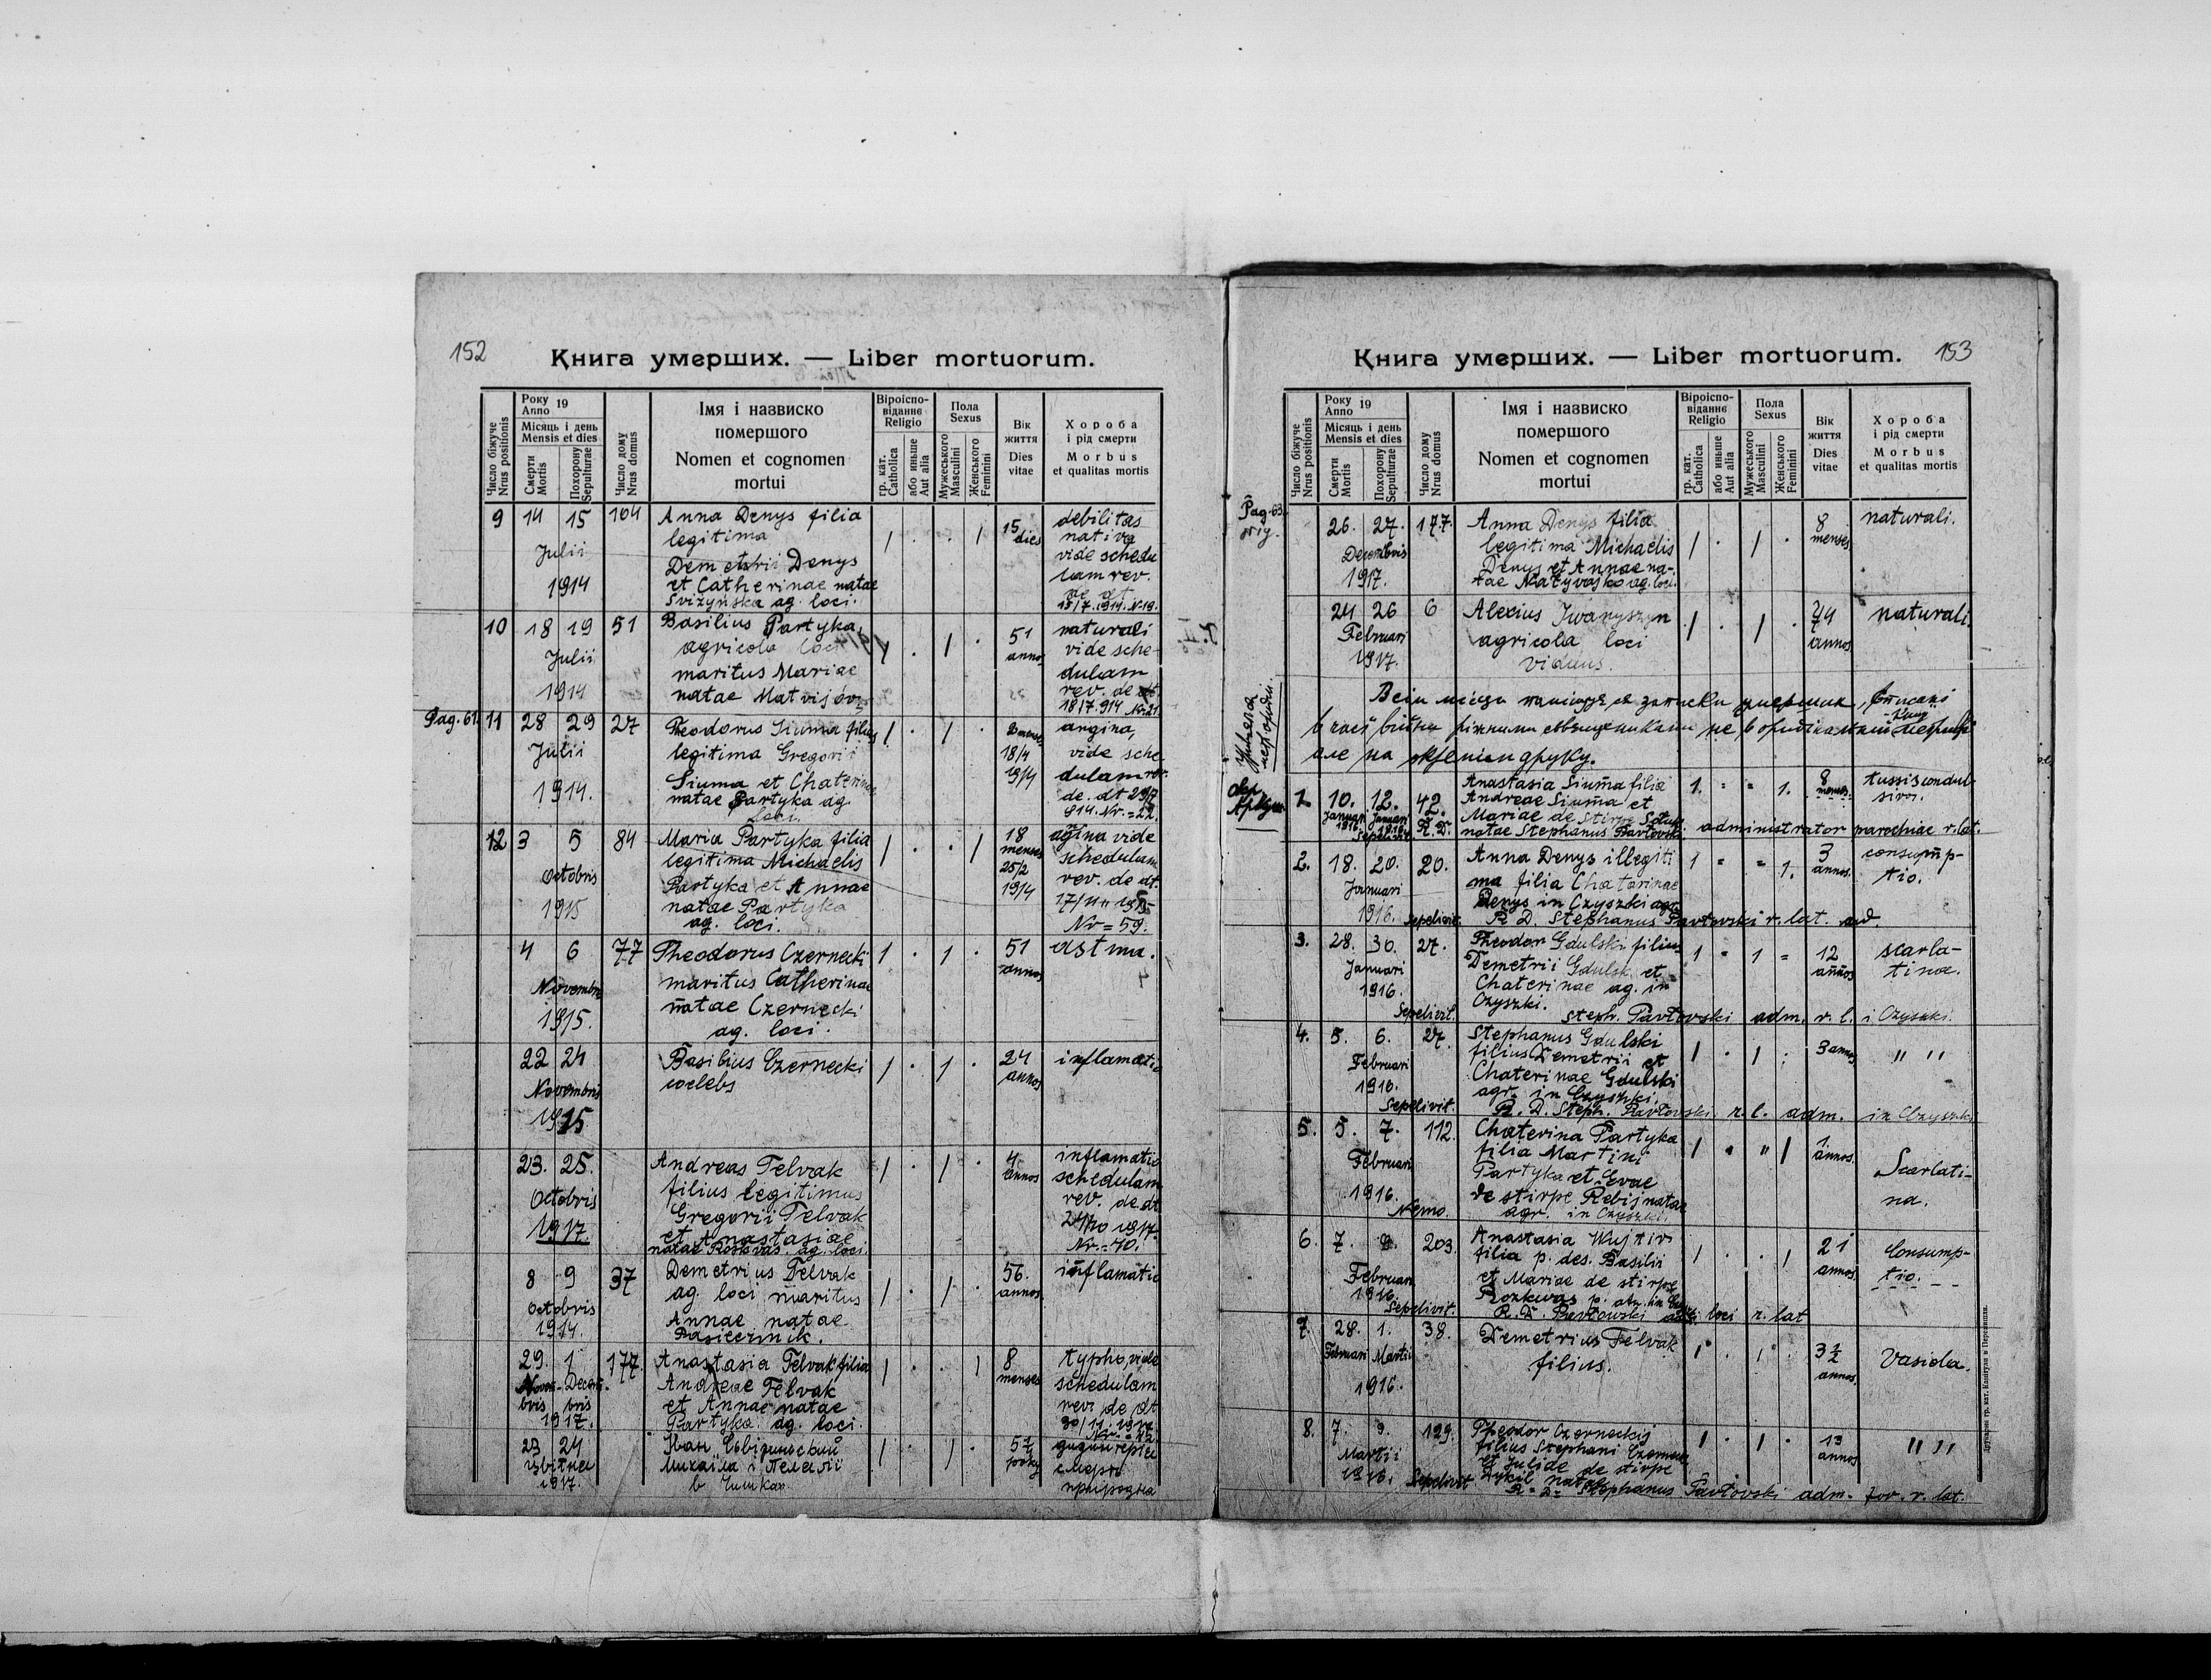 152
Книга умерших. — Liber mortuorum.
Число біжуче Nrus positionis
Року Anno 19
Місяць і день Mensis et dies
Смерти Mortis
Похорону Sepulturae
Число дому Nrus domus
Імя і назвиско
помершого
Nomen et cognomen
mortui
Віроіспо-
віданнє
Religio
гр. кат. Catholica
або иньше Aut alia
Пола
Sexus
Мужеського Masculini
Женського Feminini
Вік
життя
Dies
vitae
Хороба
і рід смерти
Morbus
et qualitas mortis
9 14 15 104 Anna Denys filia 1 . . 1 15 debilitas
legitima dies nativa
Julii vide schedu
Demetrii Denys lam rev.
1914 et Catherinae natae de dt
Svizyńska ag. loci. 18/7.1914. N19.
10 18 19 51 Basilius Partyka, 1 . 1 . 51 naturali
agricola loci annos vide sche-
Julii maritus Mariae dulam
1914 natae Matvijów rev. de dt.
18/7.914 Nr.21
Pag. 61. 11 28 29 27 Theodorus Siuma filius 1 . 1 . angina,
Julii legitima Gregorii 18/4 vide sche
Siuma et Chaterinae 19/4 dulam rev.
1914. natae Partyka ag. de. dt 29/7
loci. 914. Nr.=22.
12 3 5 84 Maria Partyka filia 1 . . 1 18 agina vide
legitima Michaelis menses schedulam
Octobris Partyka et Annae 25/2 rev. de dt.
1915 natae Partyka 19/4 17/11
ag. loci. Nr=59.
4 6 77 Theodorus Czernecki 1 . 1 . 51 astma.
Novembris maritus Catherinae annos
1915. natae Czernecki
ag. loci.
22 24 Basilius Czernecki 1 . 1 . 24 inflamatio
Novembris coelebs annos
1915
23. 25. Andreas Telvak 1 . 1 . 4 inflamatio
filius legitimus annos schedulam
Octobris Gregorii Telvak rev. de dt
1917. et Anastasiae 24/10 1917.
natae Roskvas. ag. loci. Nr.=40.
8 9 37 Demetrius Telvak 1 . 1 . 56. inflamatio
Octobris ag. loci maritus annos
1914. Annae natae
Pasiecznik.
29. 1 177. Anastasia Telvak filia 1 . . 1 8 typho, vide
Novem- Decem- Andreae Telvak menses schedulam
bris bris et Annae natae rev. de dt
1917. Partyka. ag. loci. 30/11. 1917
23 24 Іван 1 . 1 . 5½
цвітня Михаїла і Пелагії року
1917. природна
153
Книга умерших. — Liber mortuorum.
Число біжуче Nrus positionis
Року Anno 19
Місяць і день Mensis et dies
Смерти Mortis
Похорону Sepulturae
Число дому Nrus domus
Імя і назвиско
помершого
Nomen et cognomen
mortui
Віроіспо-
віданнє
Religio
гр. кат. Catholica
або иньше Aut alia
Пола
Sexus
Мужеського Masculini
Женського Feminini
Вік
життя
Dies
vitae
Хороба
і рід смерти
Morbus
et qualitas mortis
Pag. 63. orig. 26. 27. 177. Anna Denys filia 1 . 1 . 8 naturali.
Decembris legitima Michaelis menses
1917. Denys et Annae na-
tae Matyvajko ag. loci.
24 26 6 Alexius Iwanyszyn 1 . 1 . 74 naturali.
Februari agricola loci annos
1917. viduus.
записки умерших,
в часі війни ріжними священиками не в
але на аркуши друку.
1. 10. 12. 42. Anastasia Siuma filia 1. " " 1. 8 tussis convul-
Januari Januari R.D. Andreae Siuma et menses. siva.
1916. 1916. Mariae de stirpe
natae Stephanus Pavłovski administrator parochiae r. lat.
2. 18. 20. 20. Anna Denys illegiti 1 " " 1. 3 consump-
Januari ma filia Chatarinae annos. tio.
Denys in Czyszki agr.
1916. Sepelivit. R. D. Stephanus Pavłovski r. lat. ad.
3. 28. 30. 27. Theodor Gdulski filius 1 " 1 " 12 scarla-
Januari Demetrii Gdulsk et annos tina.
1916. Chaterinae ag. in
Czyszki.
Sepelivit. Steph. Pavłovski adm. r. l. i Czyszki.
4. 5. 6. 27. Stephanus Gdulski 1 . 1 . 3 annos " "
Februari filius Demetrii et
1916. Chaterinae Gdulski
agr. in Czyszki.
Sepelivit. R. D. Steph. Pavłovski r. l. adm. in Czyszki
5. 5. 7. 112. Chaterina Partyka 1 " " 1 1 Scarlati-
Februari filia Martini annos. na.
Partyka et Evae
1916. de stirpe Rebij natae
Nemo. agr. in Czyszki.
6. 7. 9. 203. Anastasia Wujtiv 1 . . 1 21 Consump-
filia p. des. Basilii annos. tio.
Februari et Mariae de stirpe
1916. Rozkwas
Sepelivit. R. D. Pavłowski loci r. lat
7. 28. 1. 38. Demetrius Telvak 1 . 1 . 3½ Vasiola.
Februari Martii filius. annos.
1916.
8. 7. 9. 129. Theodor Czerneckij 1 . 1 . 13 " "
Martii filius Stephani annos
et Juliae de stirpe
1916. Sepelivit Dykil natae
R. D. Stephanus Pavłovski adm. r. lat.